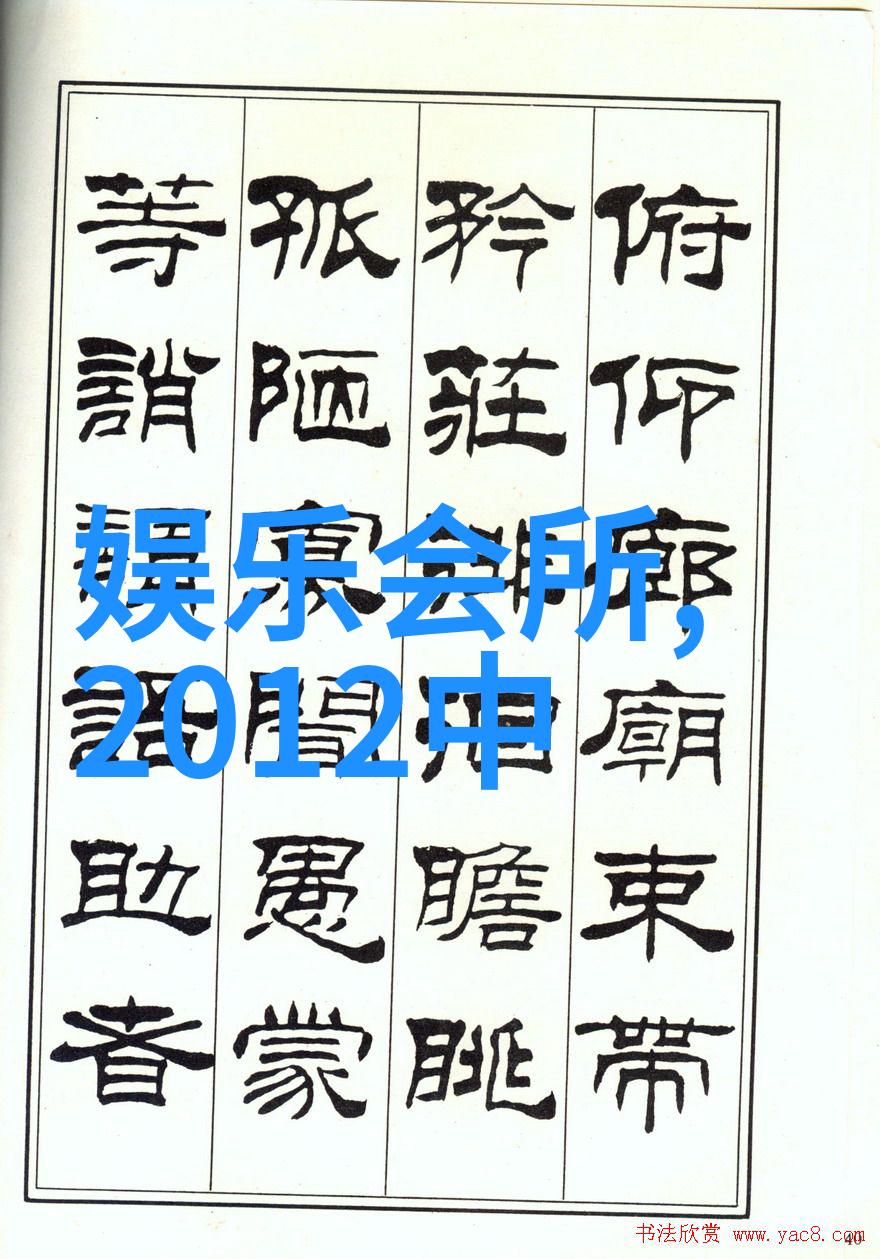 俯仰廊廟束帶
矜莊徘徊瞻眺
孤陋寡聞愚蒙
等誚謂語助者
娱乐会所,
2012中
书法欣赏 www.yac8.com
40